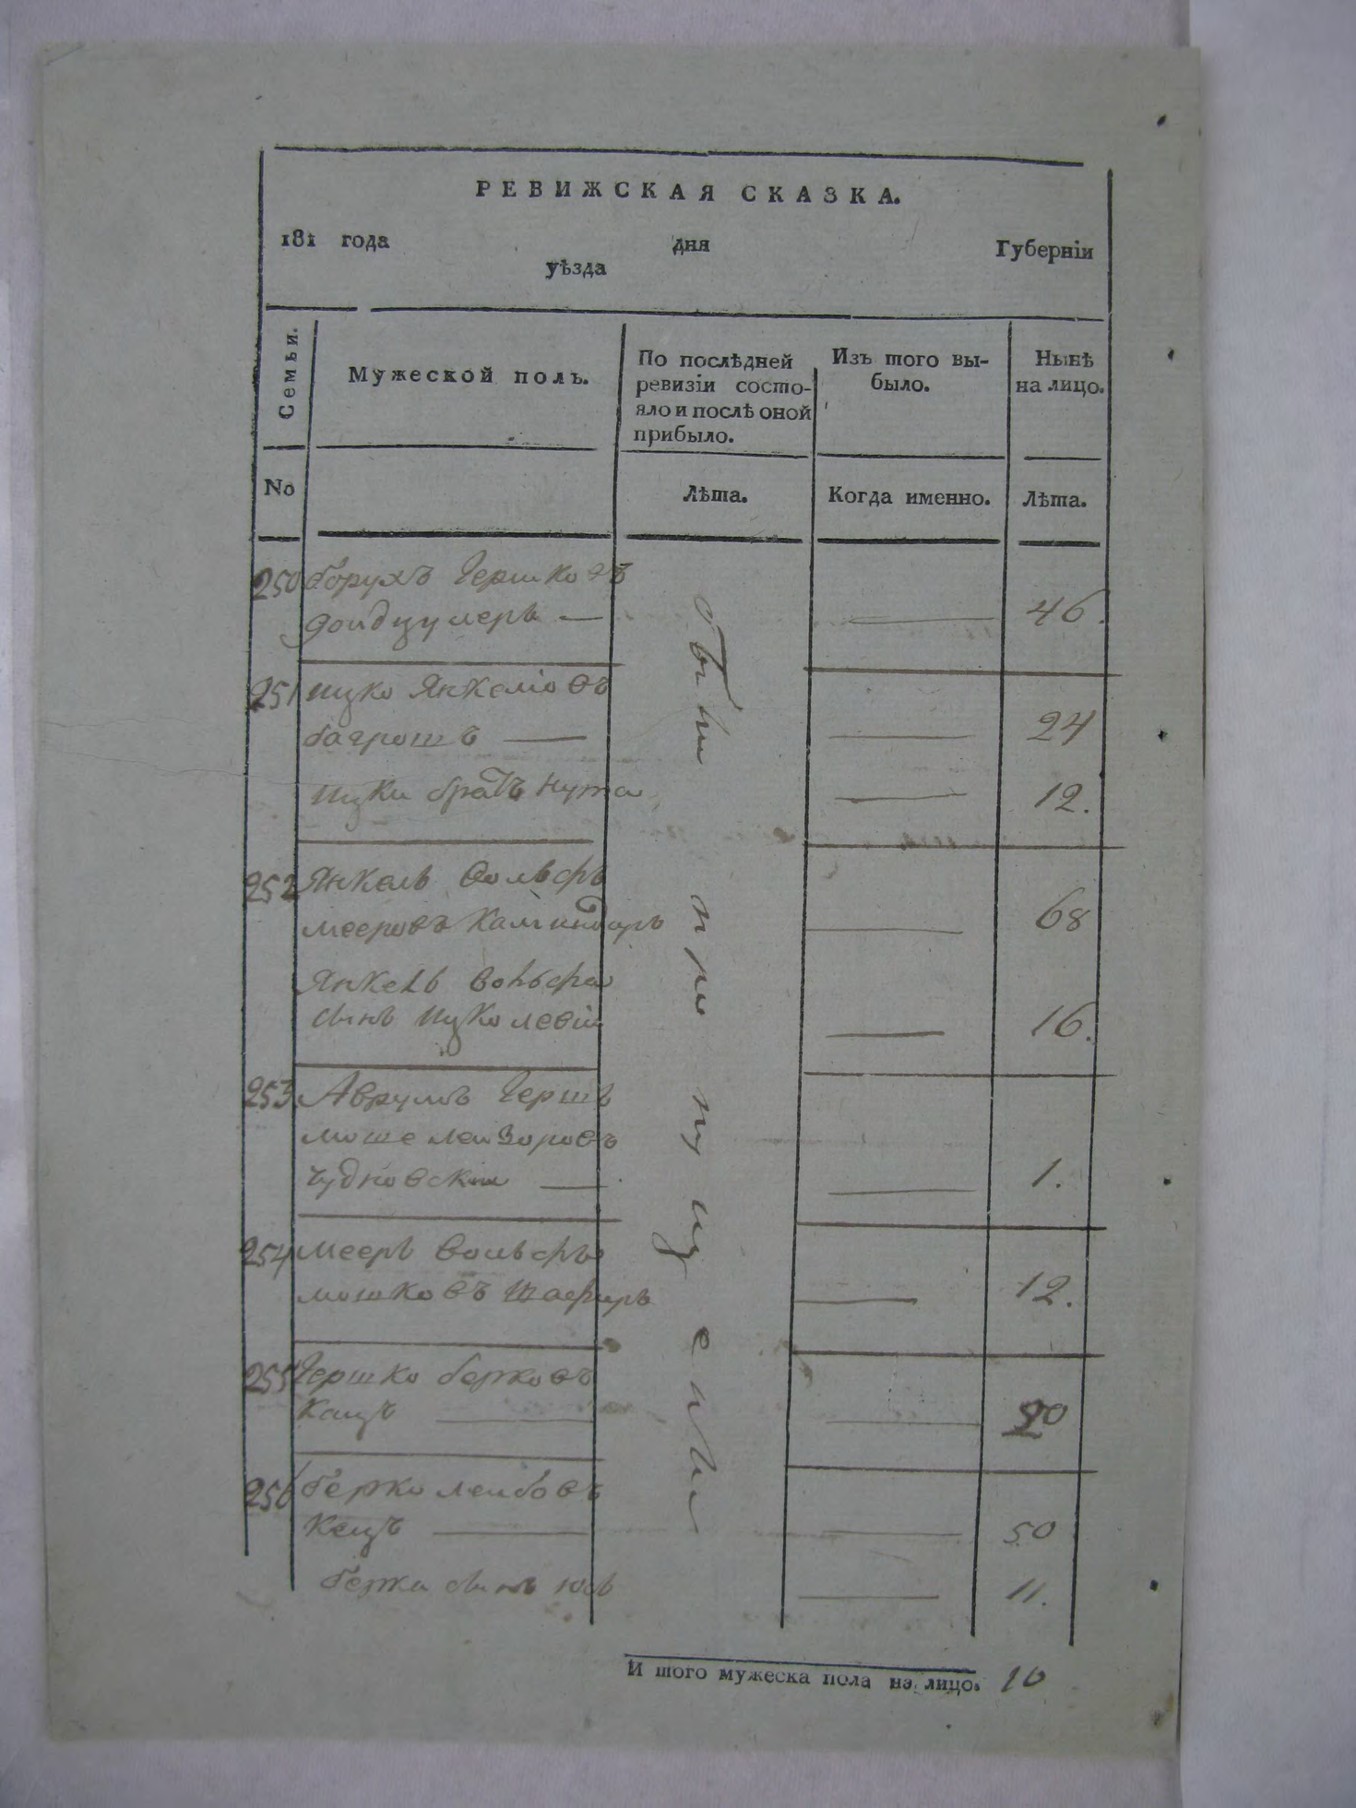 РЕВИЖСКАЯ СКАЗКА.
181 года дня Губерніи
уѣзда
Семьи.
Мужеской полъ.
По послѣдней
ревизіи состо-
яло и послѣ оной
прибыло.
Изъ того вы-
было.
Нынѣ
на лицо.
No
Лѣта.
Когда именно.
Лѣта.
были пропущени
250 Борухъ Гершковъ
46.
251 Ицко Янкеліовъ
багрошъ 24
Ицки братъ Нута 12.
252 Янкель Вольфъ
мееровъ 68
Янкель Вольфа
сынъ Ицко левій 16.
253 Аврумъ Гершъ
моше лейзоровъ
чудновскій 1.
254 мееръ Вольфъ
мошковъ Шафиръ 12.
255 Гершко берковъ
Кацъ
256 берко лейбовъ
Кацъ 50
берки сынъ 11.
И того мужеска пола на лицо. 10